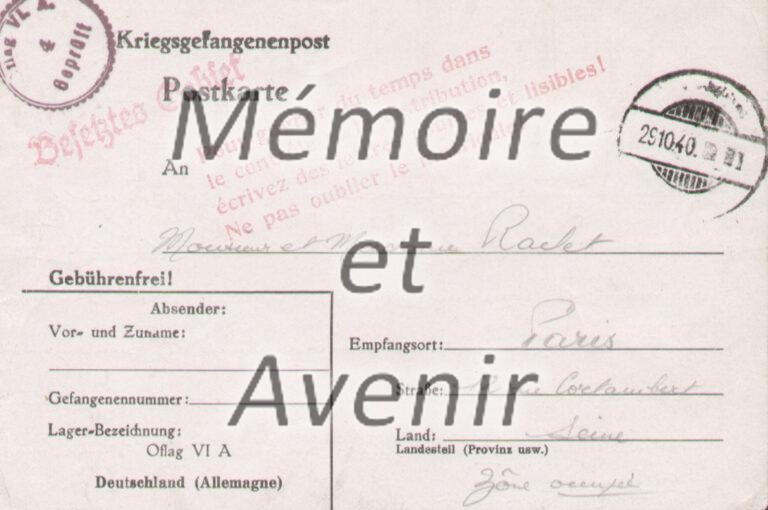 Oflag VI A
4
Geprüft
Kriegsgefangenenpost
Postkarte
Besetztes Gebiet
du temps dans
le distribution,
écrivez des et lisibles!
Ne pas oublier le
29.10.40.
An
Mémoire
et
Avenir
Monsieur et Racket
Gebührenfrei!
Absender:
Vor- und Zuname:
Gefangenennummer:
Lager-Bezeichnung:
Oflag VI A
Deutschland (Allemagne)
Empfangsort: Paris
Straße: rue Cortambert
Land: Seine
Landesteil (Provinz usw.)
Zône occupée